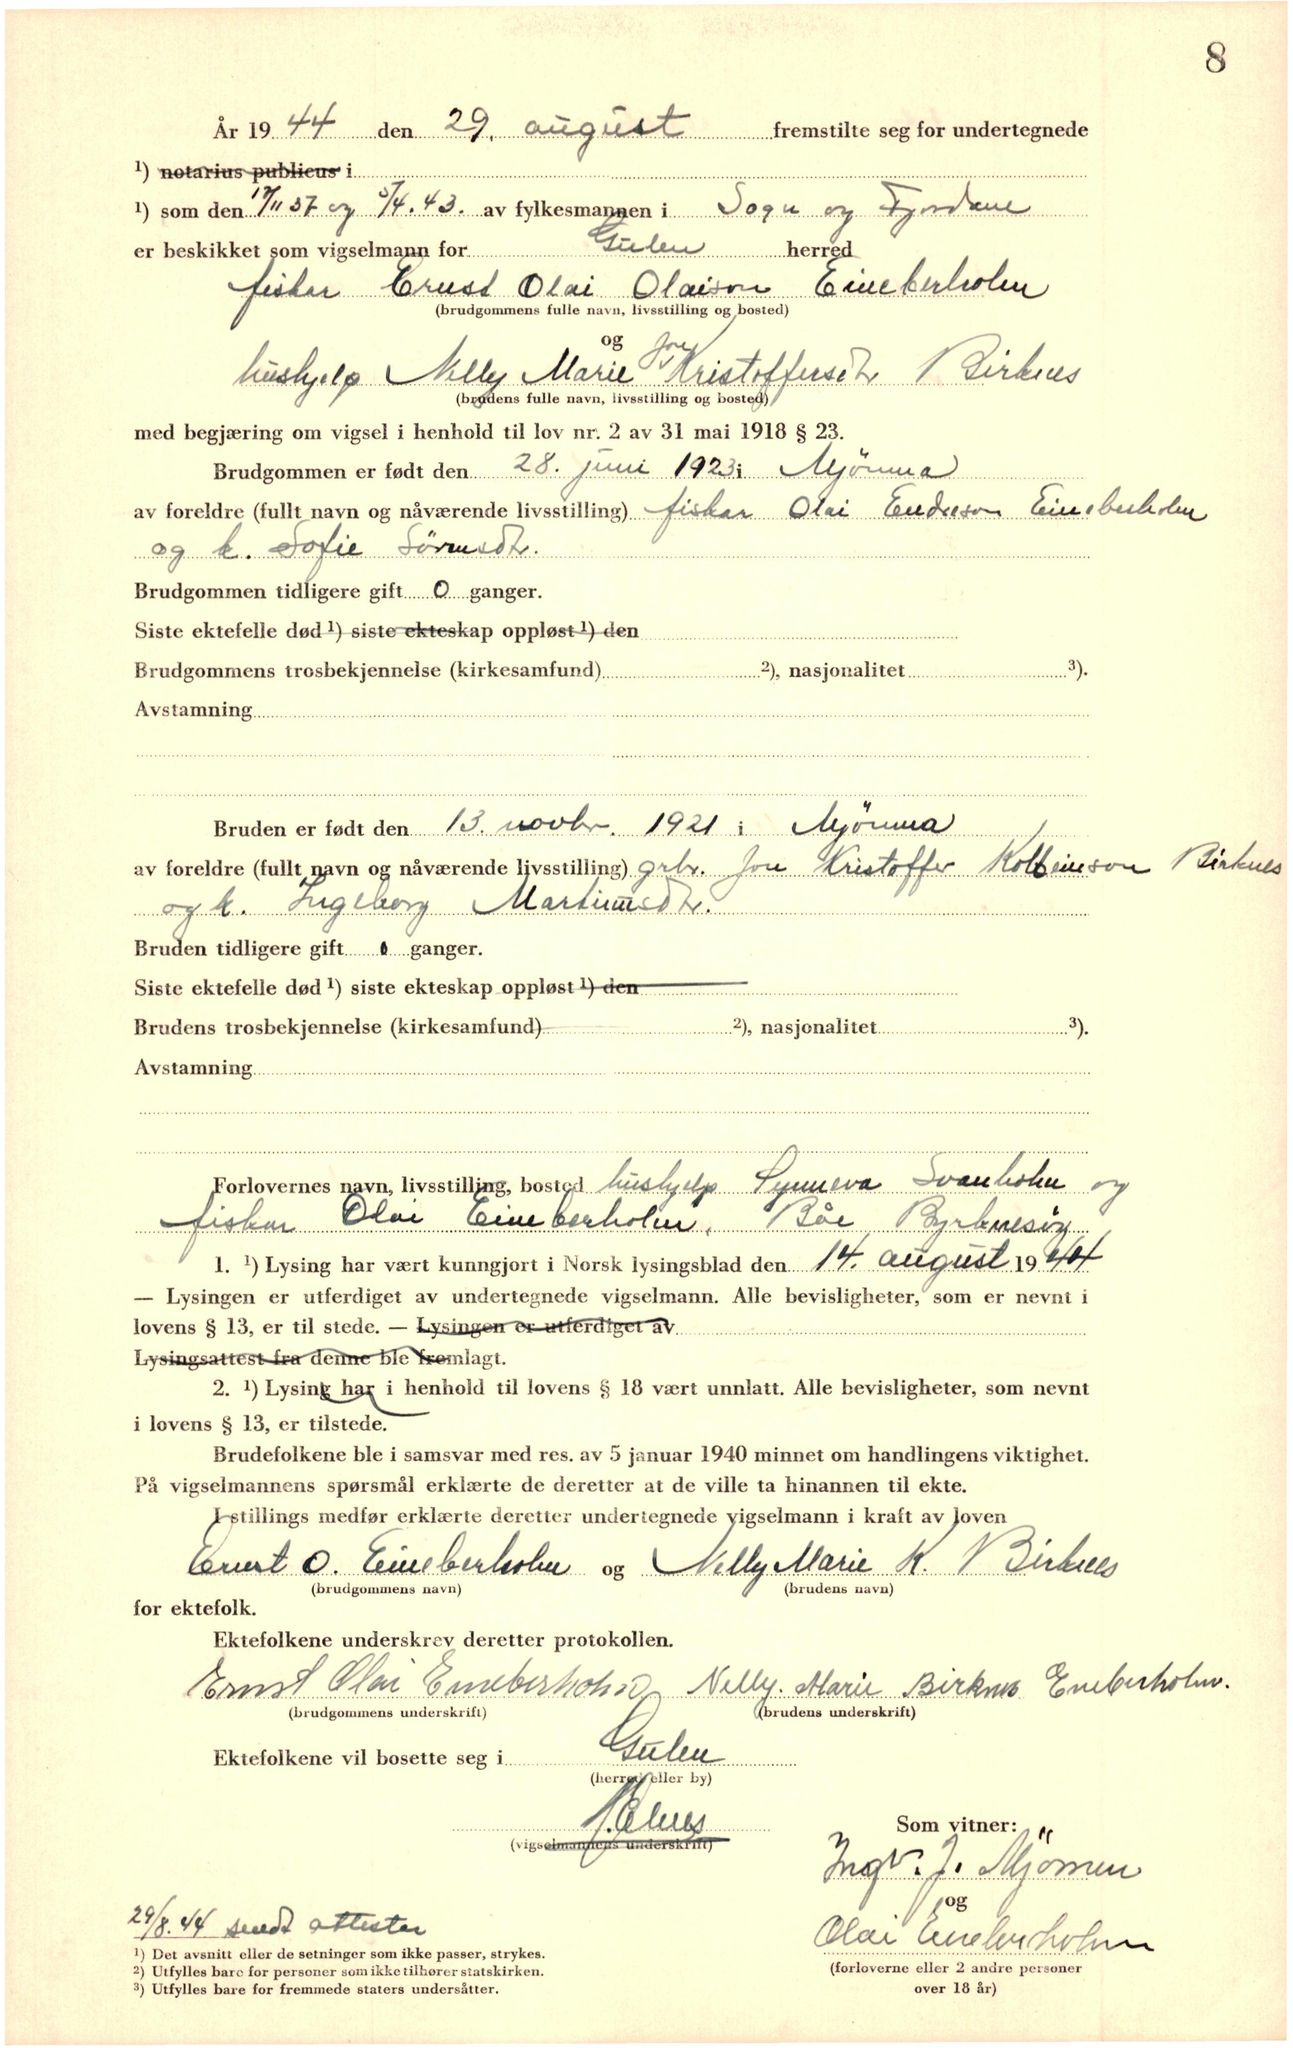 8
År 19 44 den 29. august fremstilte seg for undertegnede
¹) notarius publicus i
¹) som den 17/11 37 og 5/4. 43. av fylkesmannen i Sogn og Fjordane
er beskikket som vigselmann for Gulen herred
fiskar Ernst Olai Olaison Eineberholm
(brudgommens fulle navn, livsstilling og bosted)
og
hushjelp Nelly Marie Jon Kristoffersdtr Birknes
(brudens fulle navn, livsstilling og bosted)
med begjæring om vigsel i henhold til lov nr. 2 av 31 mai 1918 § 23.
Brudgommen er født den 28. juni 1923 i Mjömna
av foreldre (fullt navn og nåværende livsstilling) fiskar Olai Endreson Eineberholm
og k. Sofie Sörensdtr.
Brudgommen tidligere gift 0 ganger.
Siste ektefelle død ¹) siste ekteskap oppløst ¹) den
Brudgommens trosbekjennelse (kirkesamfund) ²), nasjonalitet ³).
Avstamning
Bruden er født den 13. novbr. 1921 i Mjömna
av foreldre (fullt navn og nåværende livsstilling) grbr. Jon Kristoffer Kolbeinson Birknes
og k. Ingeborg Martinusdtr.
Bruden tidligere gift 0 ganger.
Siste ektefelle død ¹) siste ekteskap oppløst ¹) den
Brudens trosbekjennelse (kirkesamfund) ²), nasjonalitet ³).
Avstamning
Forlovernes navn, livsstilling, bosted hushjelp Synneva Svanholm og
fiskar Olai Eineberholm, Båe Byrknesöy
1. ¹) Lysing har vært kunngjort i Norsk lysingsblad den 14. august 19 44
— Lysingen er utferdiget av undertegnede vigselmann. Alle bevisligheter, som er nevnt i
lovens § 13, er til stede. — Lysingen er utferdiget av
Lysingsattest fra denne ble fremlagt.
2. ¹) Lysing har i henhold til lovens § 18 vært unnlatt. Alle bevisligheter, som nevnt
i lovens § 13, er tilstede.
Brudefolkene ble i samsvar med res. av 5 januar 1940 minnet om handlingens viktighet.
På vigselmannens spørsmål erklærte de deretter at de ville ta hinannen til ekte.
I stillings medfør erklærte deretter undertegnede vigselmann i kraft av loven
Ernst O. Eineberholm og Nelly Marie K. Birknes
(brudgommens navn) (brudens navn)
for ektefolk.
Ektefolkene underskrev deretter protokollen.
Ernst Olai Eineberholm Nelly. Marie Birknes Eneberholm.
(brudgommens underskrift) (brudens underskrift)
Ektefolkene vil bosette seg i Gulen
(herred eller by)
(vigselmannens underskrift)
Som vitner:
Ingv. J. Mjömen
og
Olai Eineberholm
(forloverne eller 2 andre personer
over 18 år)
29/8. 44 sendt attester
¹) Det avsnitt eller de setninger som ikke passer, strykes.
²) Utfylles bare for personer som ikke tilhører statskirken.
³) Utfylles bare for fremmede staters undersåtter.